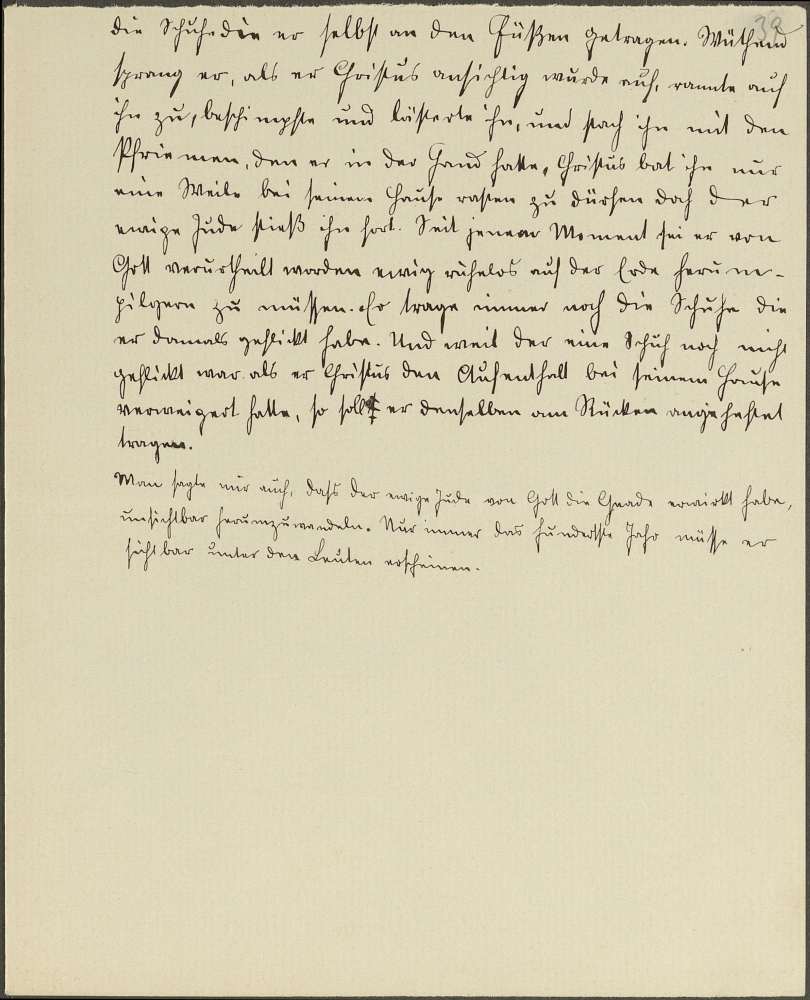 39
die Schuhe die er selbst an den Füßen getragen. Wüthend
sprang er, als er Christus ansichtig wurde auf, rannte auf
ihn zu, beschimpfte und lästerte ihn, und stach ihn mit den
Pfriemen, den er in der Hand hatte, Christus bat ihn nur
eine Weile bei seinem Hause rasten zu dürfen doch der
ewige Jude stieß ihn fort. Seit jenem Moment sei er von
Gott verurtheilt worden ewig ruhelos auf der Erde herum-
pilgern zu müssen. Er trage immer noch die Schuhe die
er damals geflickt habe. Und weil der eine Schuh noch nicht
geflickt war als er Christus den Aufenthalt bei seinem Hause
verweigert hatte, so soll er denselben am Rücken angeheftet
tragen.
Man sagte mir auch, dass der ewige Jude von Gott die Gnade erwirkt habe,
unsichtbar herumzuwandeln. Nur immer das hundertste Jahr müsse er
sichtbar unter den Leuten erscheinen.